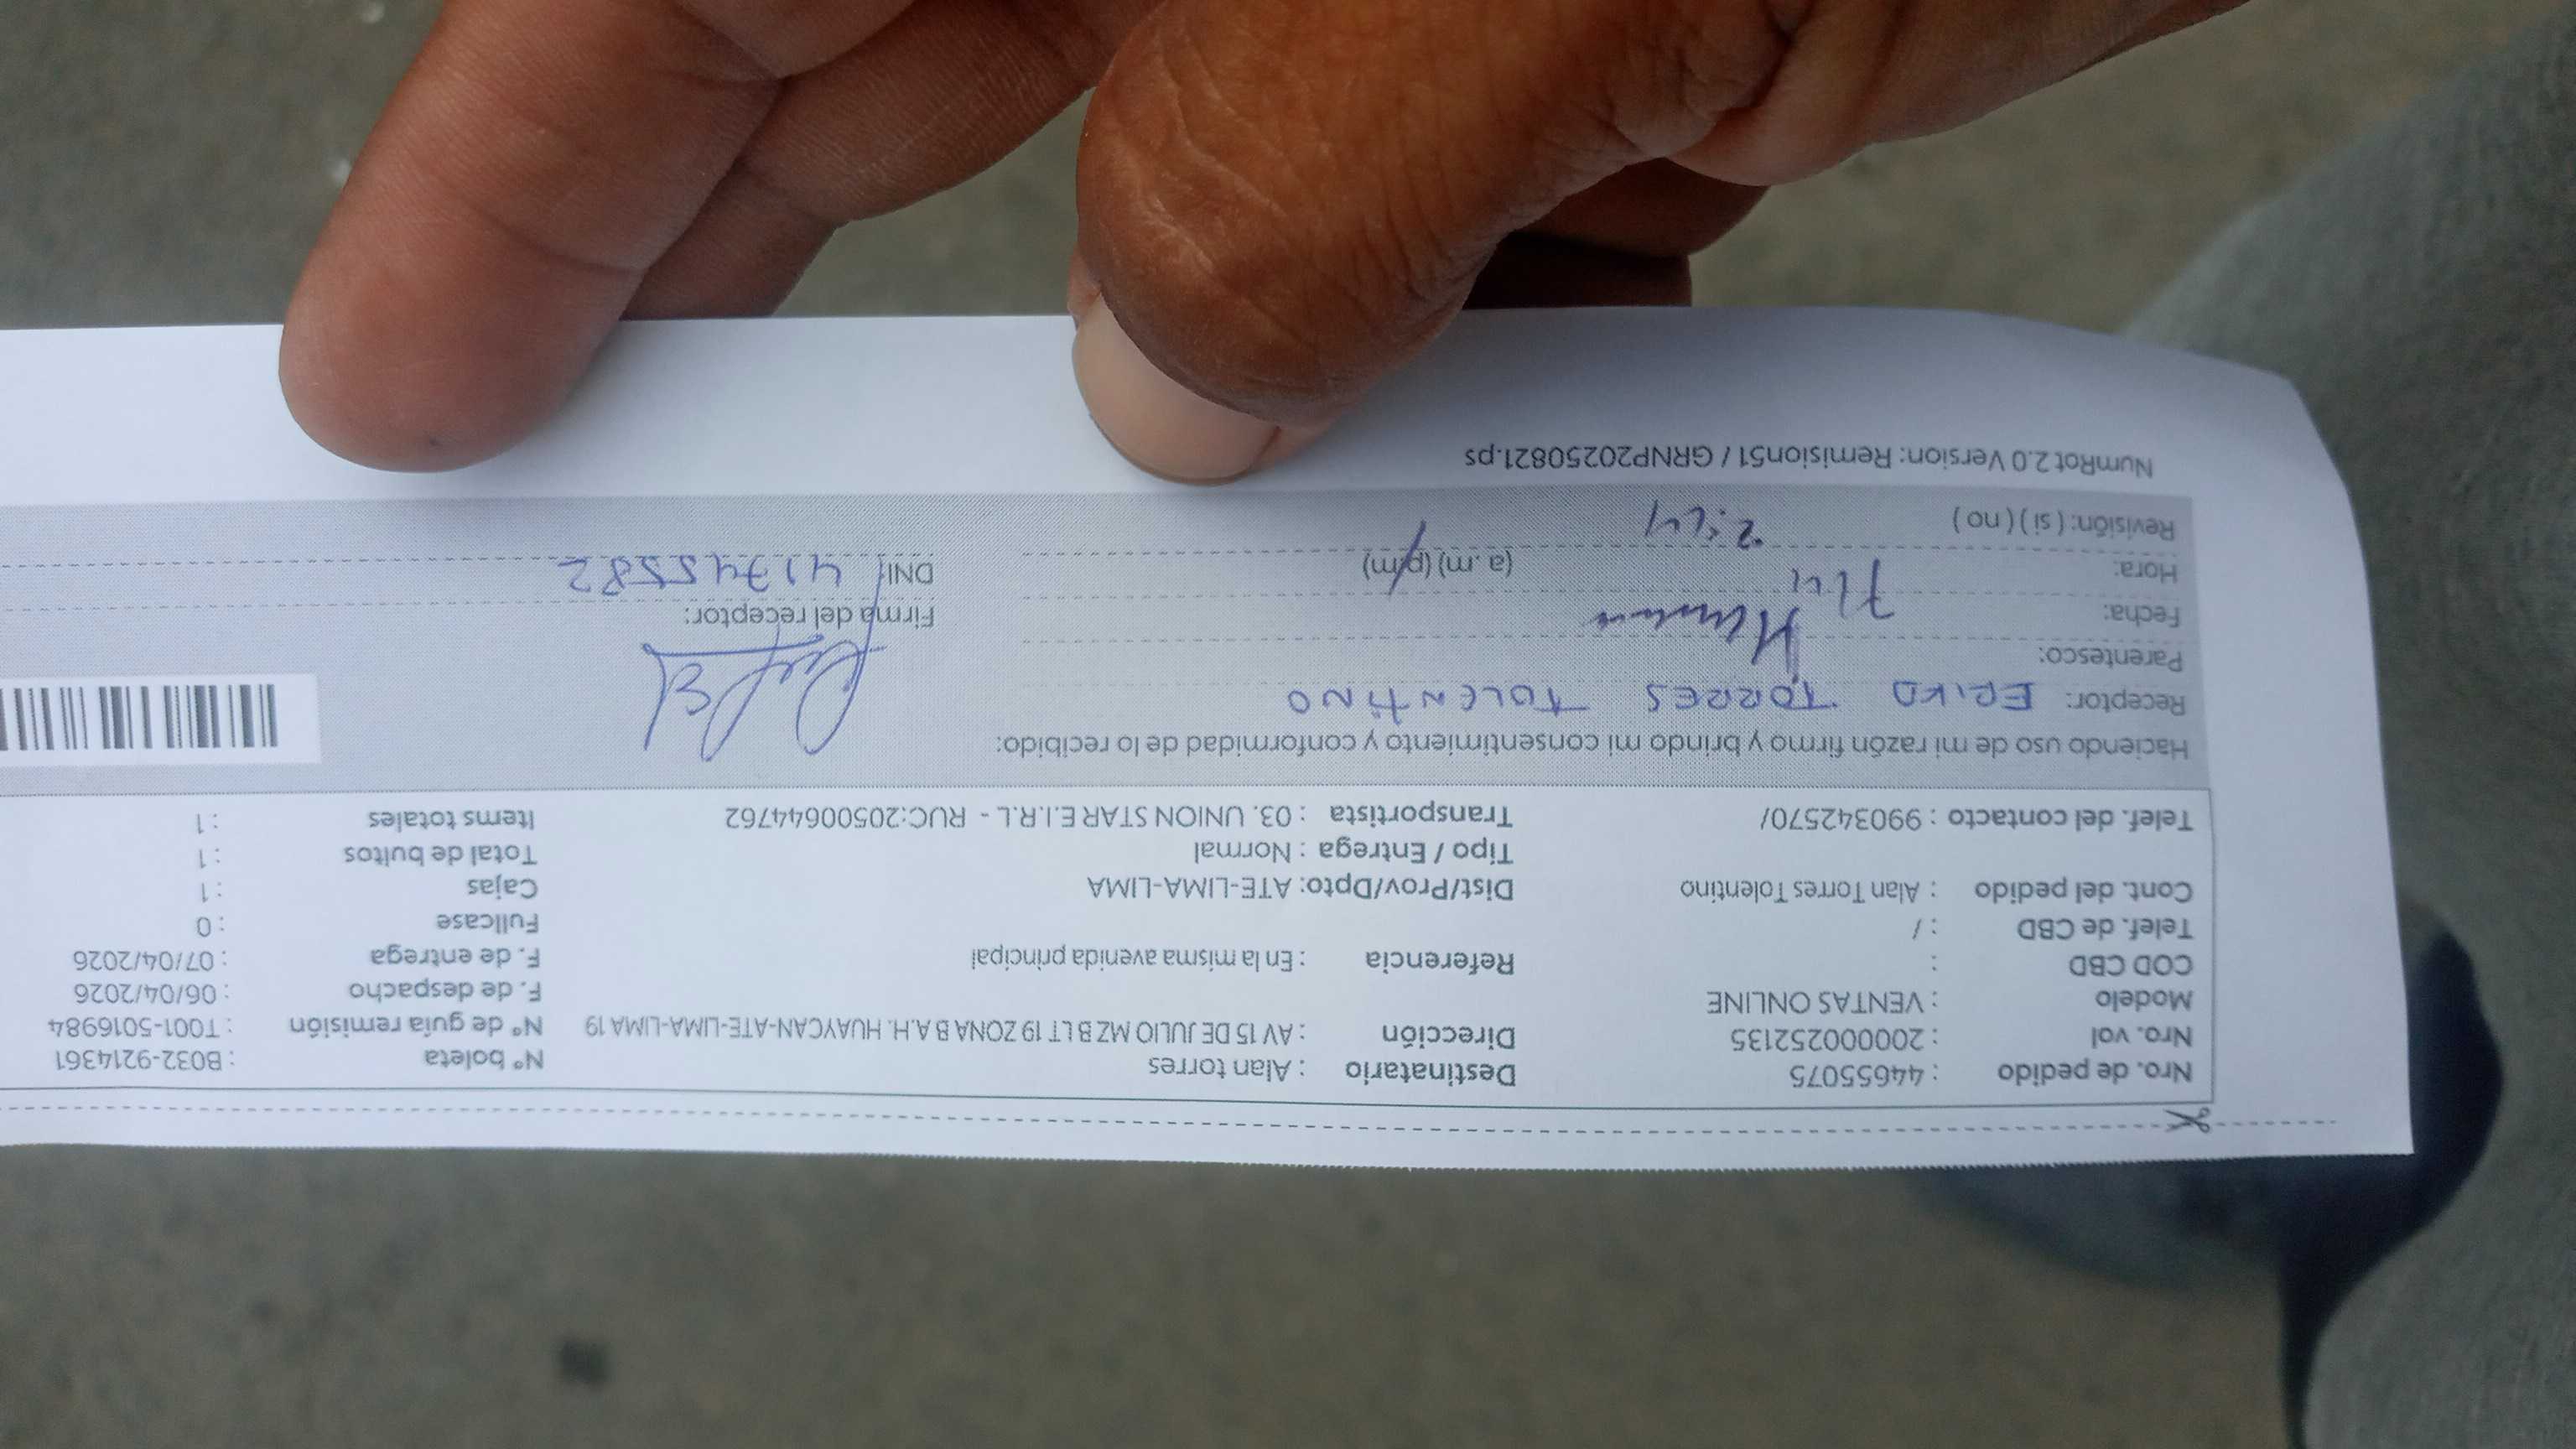 Nro. de pedido : 44655075 Destinatario : Alan torres N° boleta : B032-9214361
Nro. vol : 20000252135 Dirección : AV 15 DE JULIO MZ B LT 19 ZONA B A.H. HUAYCAN-ATE-LIMA-LIMA 19 N° de guía remisión : T001-5016984
Modelo : VENTAS ONLINE F. de despacho : 06/04/2026
COD CBD : Referencia : En la misma avenida principal F. de entrega : 07/04/2026
Telef. de CBD : / Fullcase : 0
Cont. del pedido : Alan Torres Tolentino Dist/Prov/Dpto: ATE-LIMA-LIMA Cajas : 1
Tipo / Entrega : Normal Total de bultos : 1
Telef. del contacto : 990342570/ Transportista : 03. UNION STAR E.I.R.L - RUC:20500644762 Items totales : 1
Haciendo uso de mi razón firmo y brindo mi consentimiento y conformidad de lo recibido:
Receptor: ERIKA TORRES TOLENTINO
Parentesco:
Fecha: Firma del receptor:
Hora: (a.m) (p/m) DNI 41745582
Revisión: ( si ) ( no )
NumRot 2.0 Version: Remision51 / GRNP20250821.ps